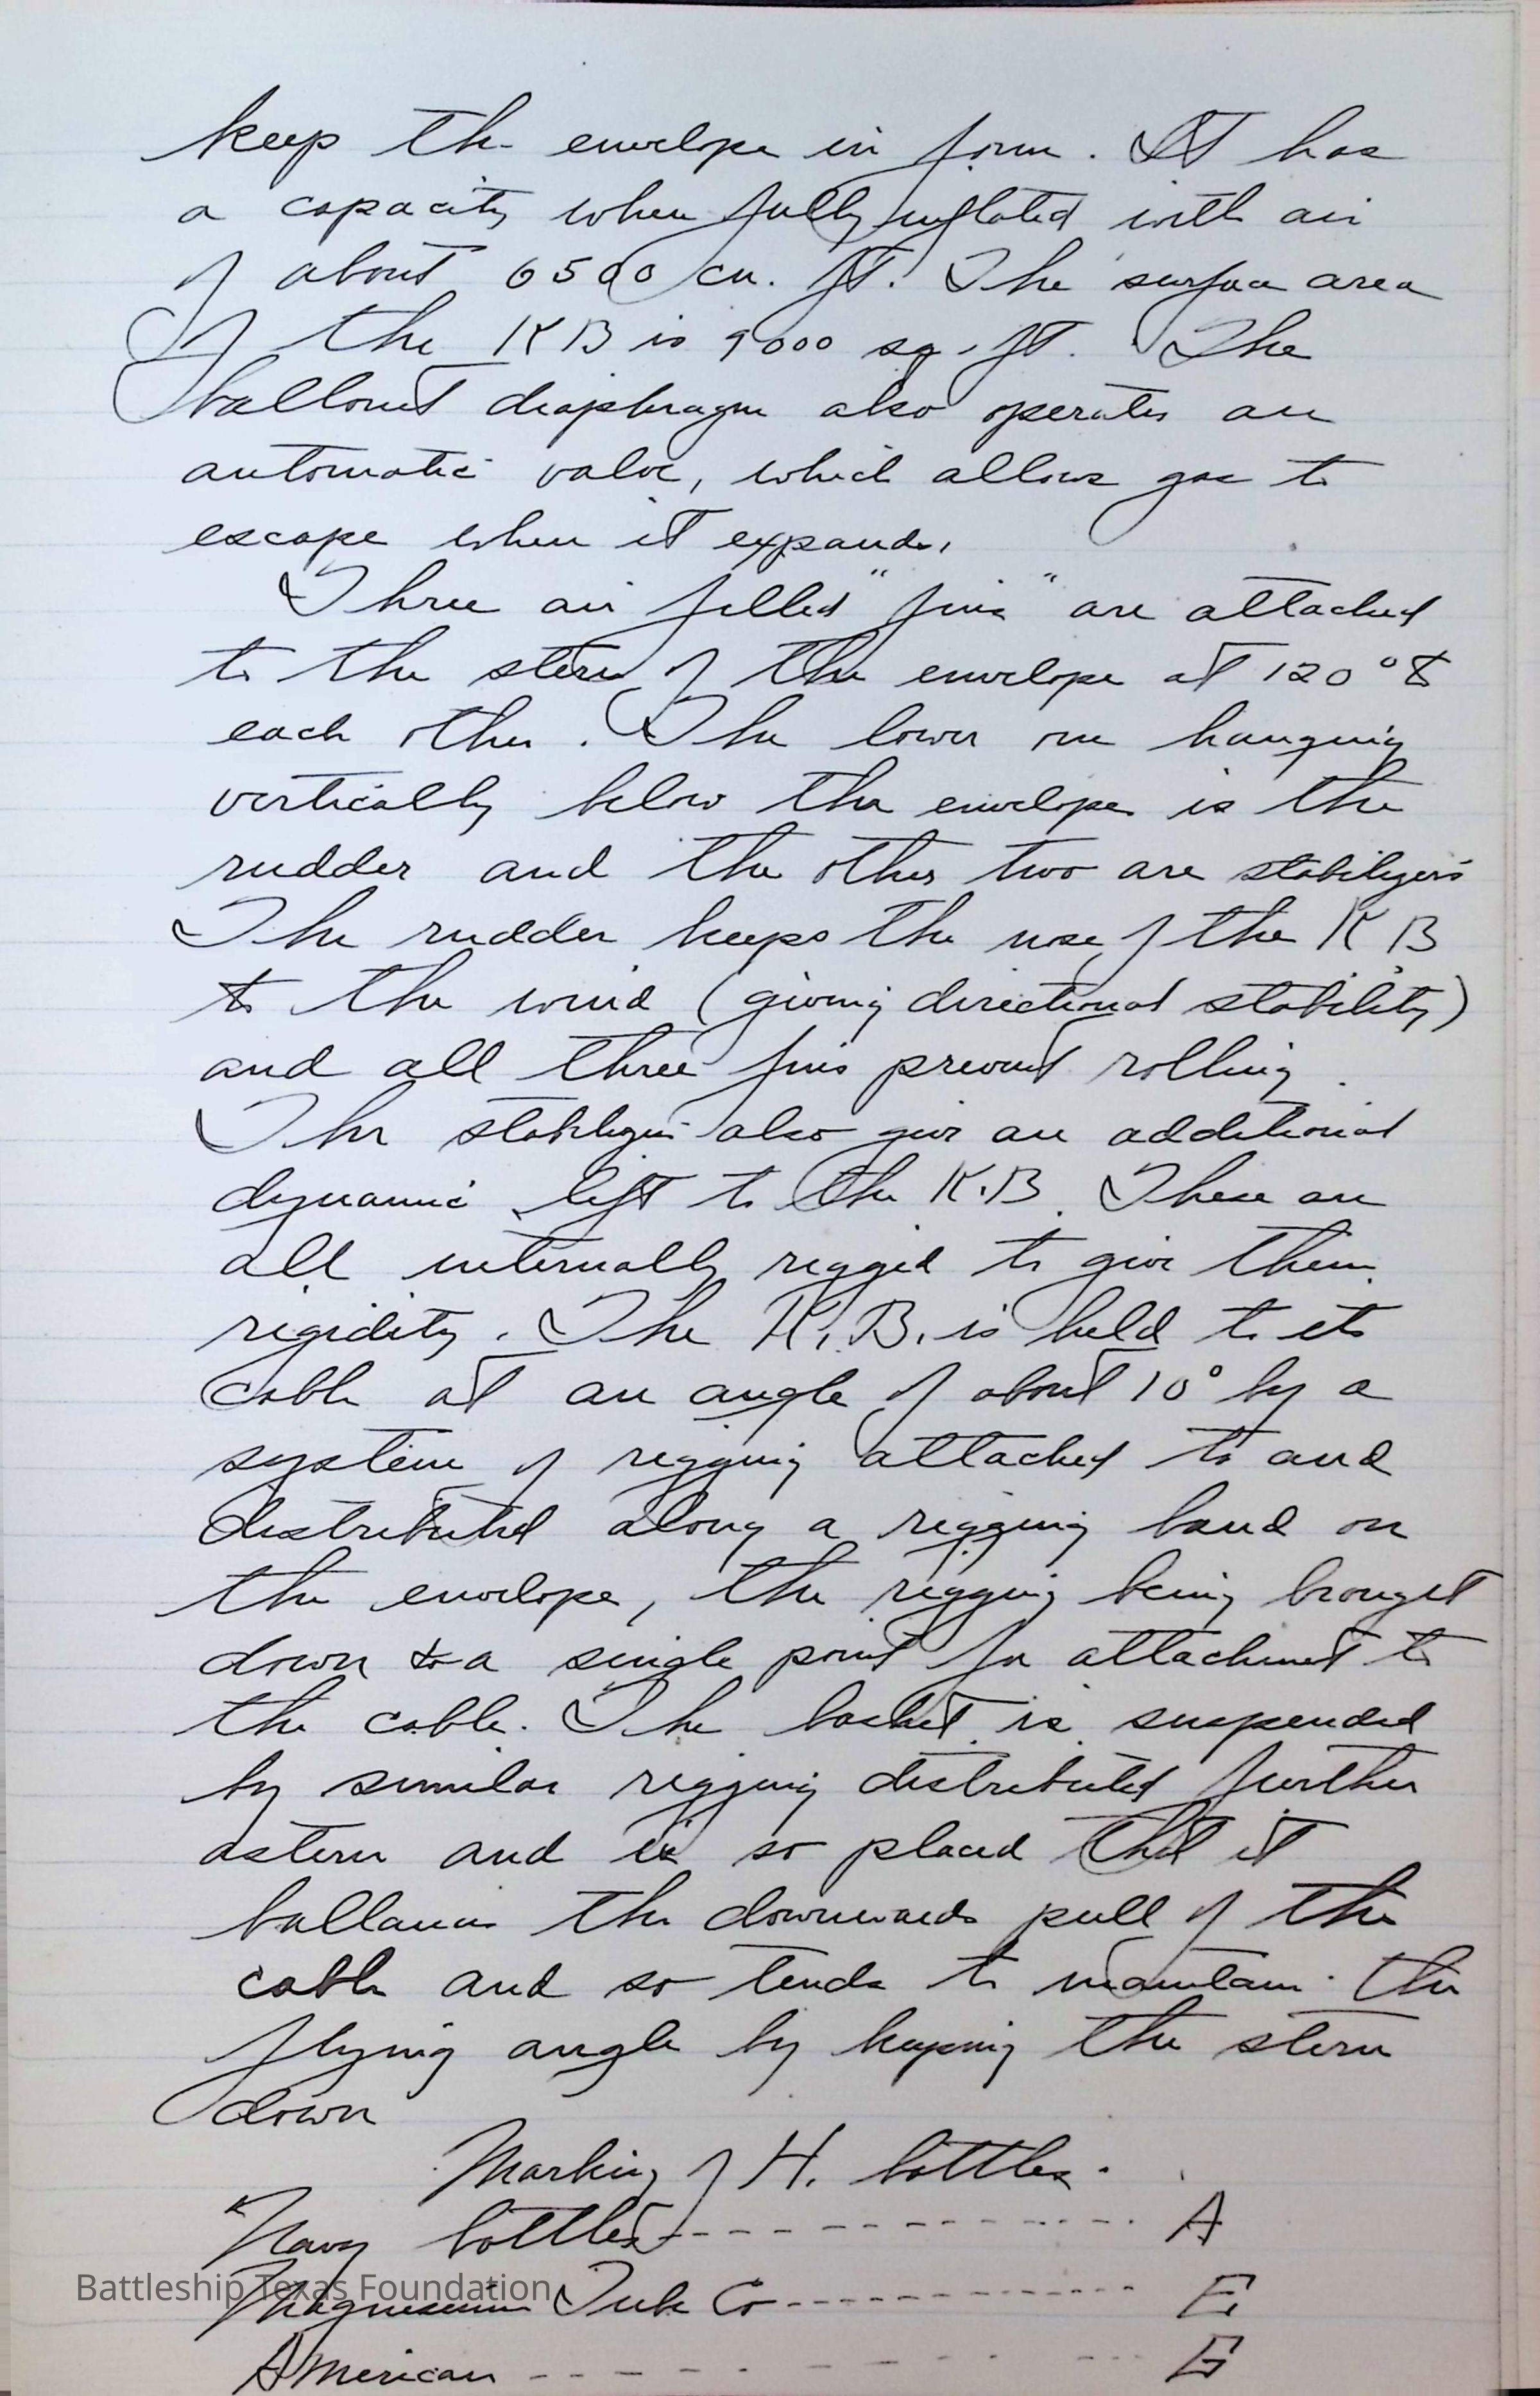 keep the envelope in form. It has
a capacity when fully inflated with air
of about 6500 cu. ft. The surface area
of the KB is 9000 sq. ft. The
ballonet diaphragm also operates an
automatic valve, which allows gas to
escape when it expands.
Three air filled "fins" are attached
to the stern of the envelope at 120° to
each other. The lower one hanging
vertically below the envelope is the
rudder and the other two are stabilizers
The rudder keeps the nose of the KB
to the wind (giving directional stability)
and all three fins prevent rolling.
The stabilizers also give an additional
dynamic lift to the K.B. These are
all internally rigged to give them
rigidity. The K.B. is held to its
cable at an angle of about 10° by a
system of rigging attached to and
distributed along a rigging band on
the envelope, the rigging being brought
down to a single point for attachment to
the cable. The basket is suspended
by similar rigging distributed further
astern and is so placed that it
ballances the downwards pull of the
cable and so tends to maintain the
flying angle by keeping the stern
down
Marking of H. bottles.
Navy bottles ---------- A
Battleship Texas Foundation
Magnesium Tube Co ---------- E
American ---------- G